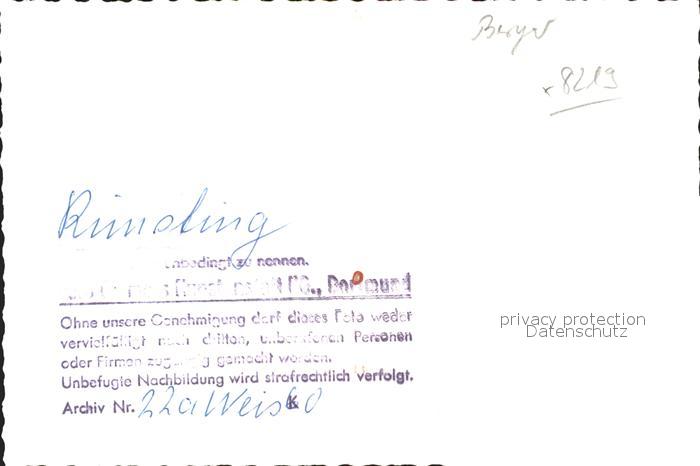 Berger
8219
Rimsting
unbedingt zu nennen.
Dortmund
Ohne unsere Genehmigung darf dieses Foto weder
vervielfältigt noch dritten, unberufenen Personen
oder Firmen zugängig gemacht werden.
Unbefugte Nachbildung wird strafrechtlich verfolgt.
Archiv Nr. 22a
privacy protection
Datenschutz